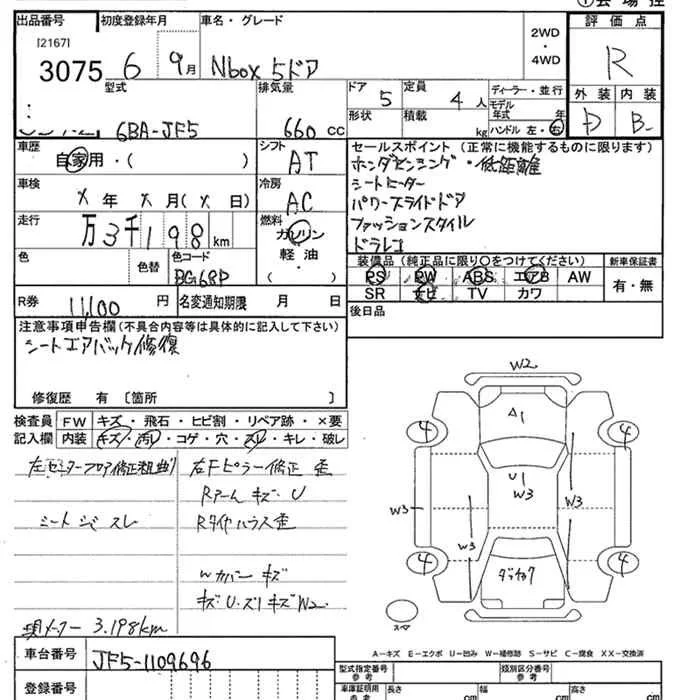 ①会場控
出品番号 初度登録年月 車名・グレード 評価点
[2167]
3075 6 9月 Nbox 5ドア 2WD・4WD R
型式 排気量 ドア 定員 ディーラー・並行 外装 内装
6BA-JF5 660 CC 5 4 人 モデル年式 年 D B-
形状 積載 kg ハンドル 左・右
車歴 シフト セールスポイント(正常に機能するものに限ります)
自家用・( ) AT ホンダセンシング・低距離
車検 冷房 シートヒーター
X 年 X 月( X 日) AC パワースライドドア
走行 燃料 ファッションスタイル
万3千198km ガソリン ドラレコ
軽油・
( )
色 色替 色コード 装備品(純正品に限り○をつけてください) 新車保証書
BG68P PS PW ABS エアB AW 有・無
SR ナビ TV カワ
R券 11,100 円 名変通知期限 月 日 後日品
注意事項申告欄(不具合内容等は具体的に記入して下さい)
シートエアバック修復
修復歴 有 〔箇所 〕
検査員 FW キズ・飛石・ヒビ割・リペア跡・×要
記入欄 内装 キズ・汚れ・コゲ・穴・スレ・キレ・破レ
左センターフロア修正粗曲り 右Fピラー修正 歪
Rアーム キズ U
シート シミ スレ Rタイヤハウス歪
Wカバー キズ
キズ U・ズリキズ W2
現メーター 3.198km
W2
4 △1 4
U1
W3 W3 W3
W3
4 ダッチック 4
スマ
A-キズ E-エクボ U-凹み W-補修跡 S-サビ C-腐食 XX-交換済
車台番号 JF5-1109696
登録番号
型式指定番号 参考 類別区分番号 参考
車庫証明用 参考 長さ cm 幅 cm 高さ cm